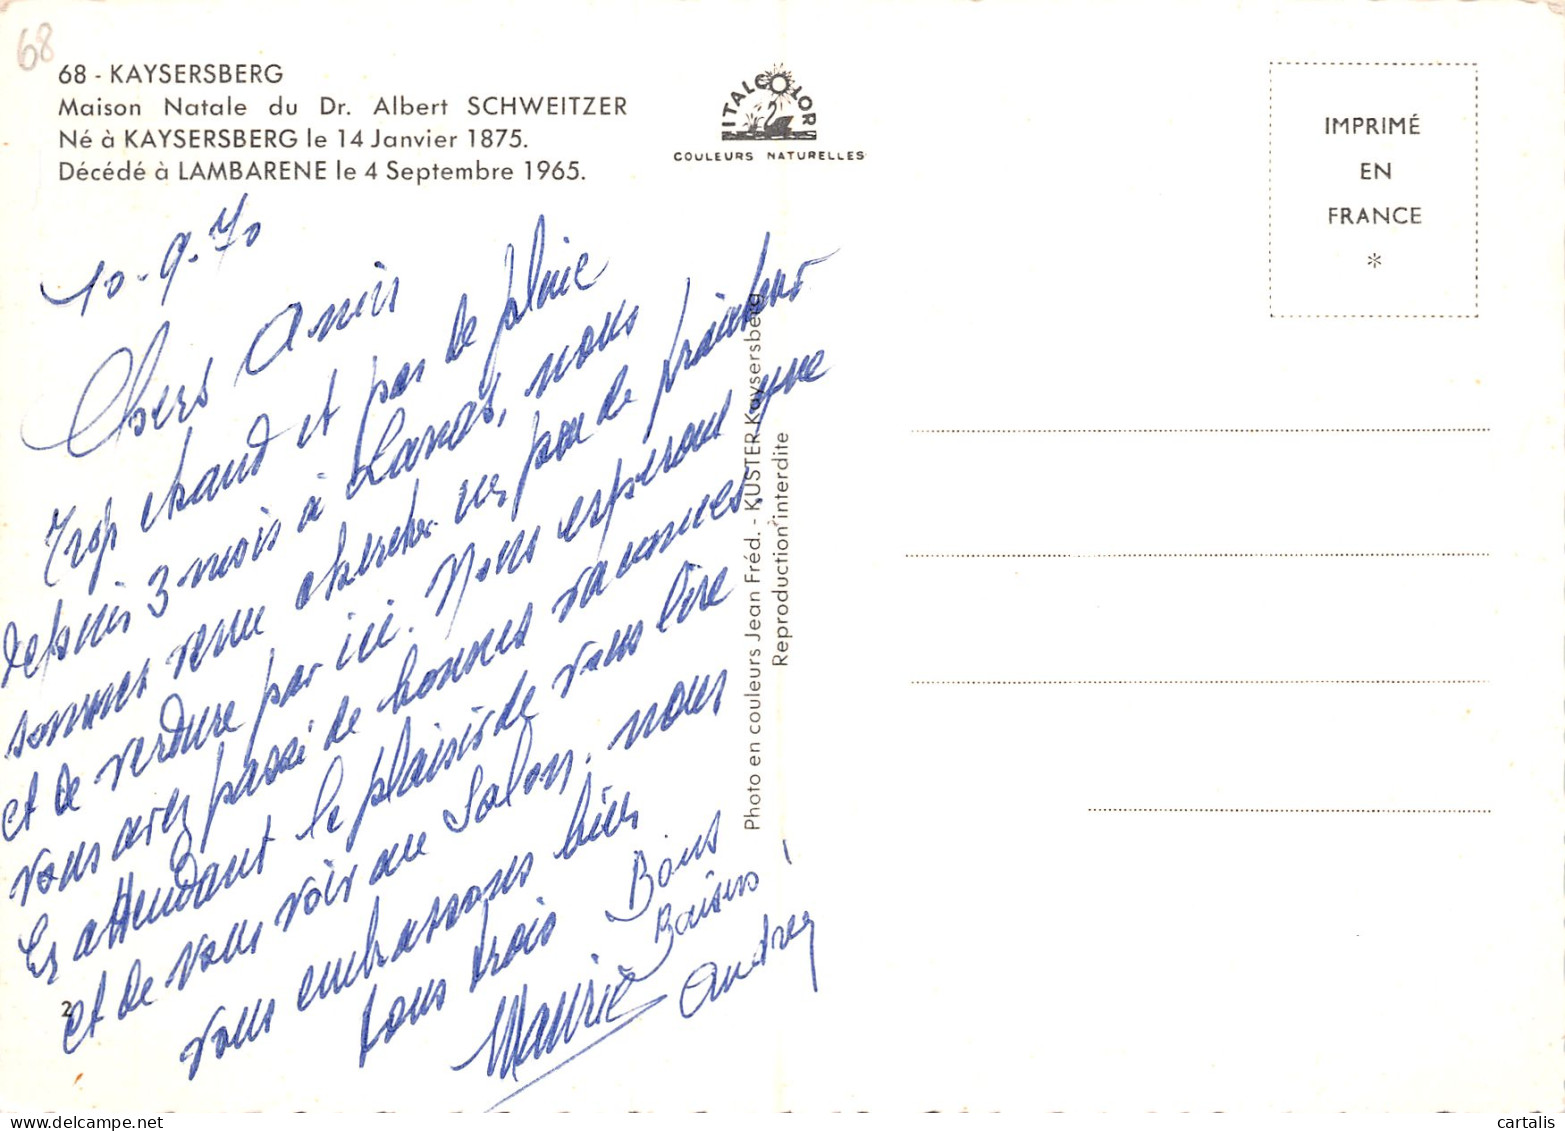 68
68 - KAYSERSBERG
Maison Natale du Dr. Albert SCHWEITZER
Né à KAYSERSBERG le 14 Janvier 1875.
Décédé à LAMBARENE le 4 Septembre 1965.
ITALCOLOR
COULEURS NATURELLES
IMPRIMÉ
EN
FRANCE
*
10-9-70
Chers Amis
Trop chaud et pas de pluie
depuis 3 mois à Lanas, nous
sommes venu chercher un peu de fraicheur
et de verdure par ici. Nous esperons que
vous avez passé de bonnes vacances.
En attendant le plaisir de vous lire
et de vous voir au Salon, nous
vous embrassons bien
tous trois
Bons
Baisers !
Maurice
Andrée
2
Photo en couleurs Jean Fréd. - KUSTER Kaysersberg
Reproduction interdite
cartalis